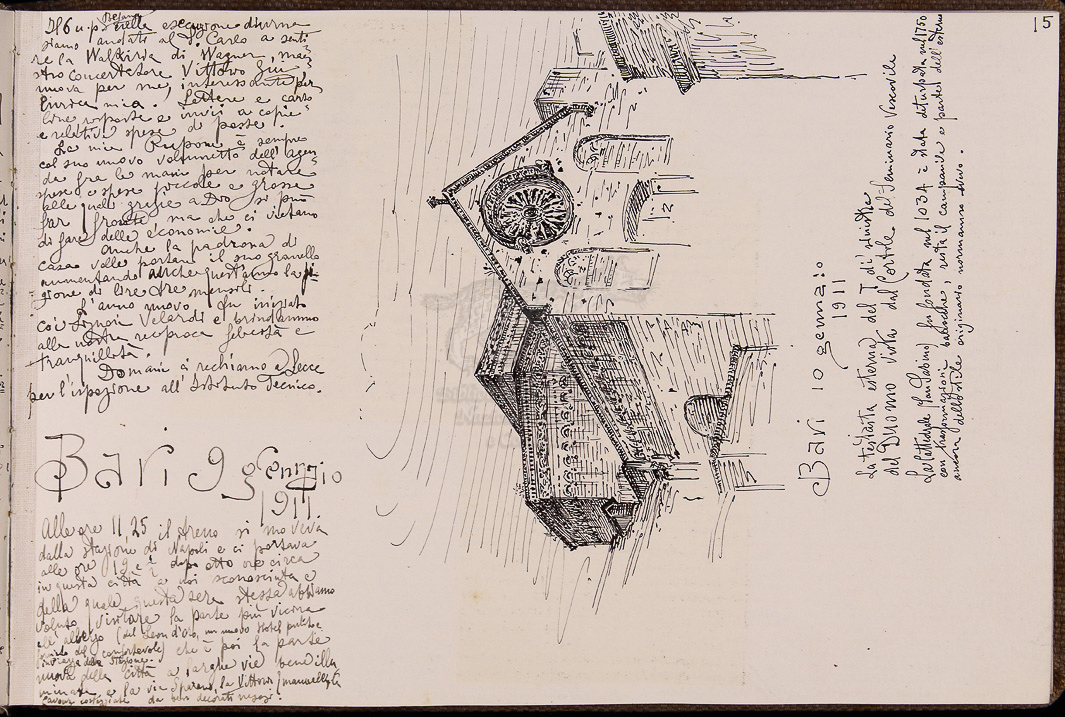 15
Il 6 u. p. nella esecuzione diurna
siamo andati al S. Carlo a senti-
re la Walkiria di Wagner, mae-
stro concertatore Vittorio Gui
nuova per me, interessante per
Enrica mia. Lettere e carto-
line risposte e invii a copie
e relative spese di posta.
La mia è sempre
col suo nuovo volumetto dell'agen-
da fra le mani per notare
spese e spese piccole e grosse
alle quali grazie a Dio si può
far fronte ma che ci vietano
di fare delle economie.
Anche la padrona di
casa volle portare il suo granello
aumentando anche quest'anno la pi-
gione di lire tre mensili.
L'anno nuovo fu iniziato
coi Signori Velardi e brindammo
alla nostra reciproca felicità e
tranquillità.
Domani ci rechiamo a Lecce
per l'ispezione all'Istituto Tecnico.
Bari 9 gennaio
1911
Alle ore 11,25 il treno si moveva
dalla stazione di Napoli e ci portava
alle ore 19 e ½ dopo otto ore circa
in questa città a noi sconosciuta e
della quale questa sera stessa abbiamo
voluto visitare la parte più vicina
all'albergo (del Leon d'Oro, un nuovo Hotel
del confortevole) che è poi la parte
nuova della città a larghe vie ben illu-
minate e la via Sparano, la Vittorio Emanuele
Cavour costeggiate da bei negozi.
Bari 10 gennaio
1911
La testata esterna del T di
del Duomo vista dal Cortile del Seminario Vescovile
La Cattedrale (San Sabino) fu fondata nel 1034 è stata deturpata nel 1750
con trasformazioni barocche, resta il campanile e parte dell'esterno
ancora dello stile originario normanno